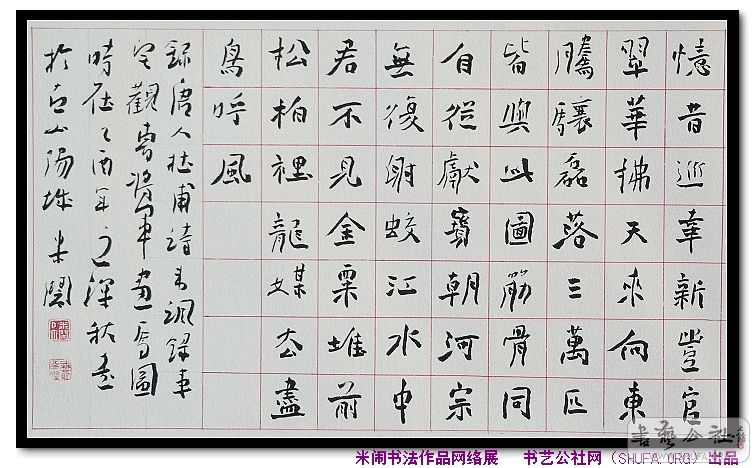 憶昔巡幸新豐宫
翠華拂天來向東
騰驤磊落三萬匹
皆與此圖筋骨同
自從獻寶朝河宗
無復射蛟江水中
君不見金粟堆前
松柏裡龍媒去盡
鳥呼風
錄唐人杜甫詩韋諷錄事
宅觀曹將軍畫馬圖
時在乙酉年之深秋書
於古山陽城 米鬧
書藝公社
米闹书法作品网络展 书艺公社网（SHUFA.ORG）出品